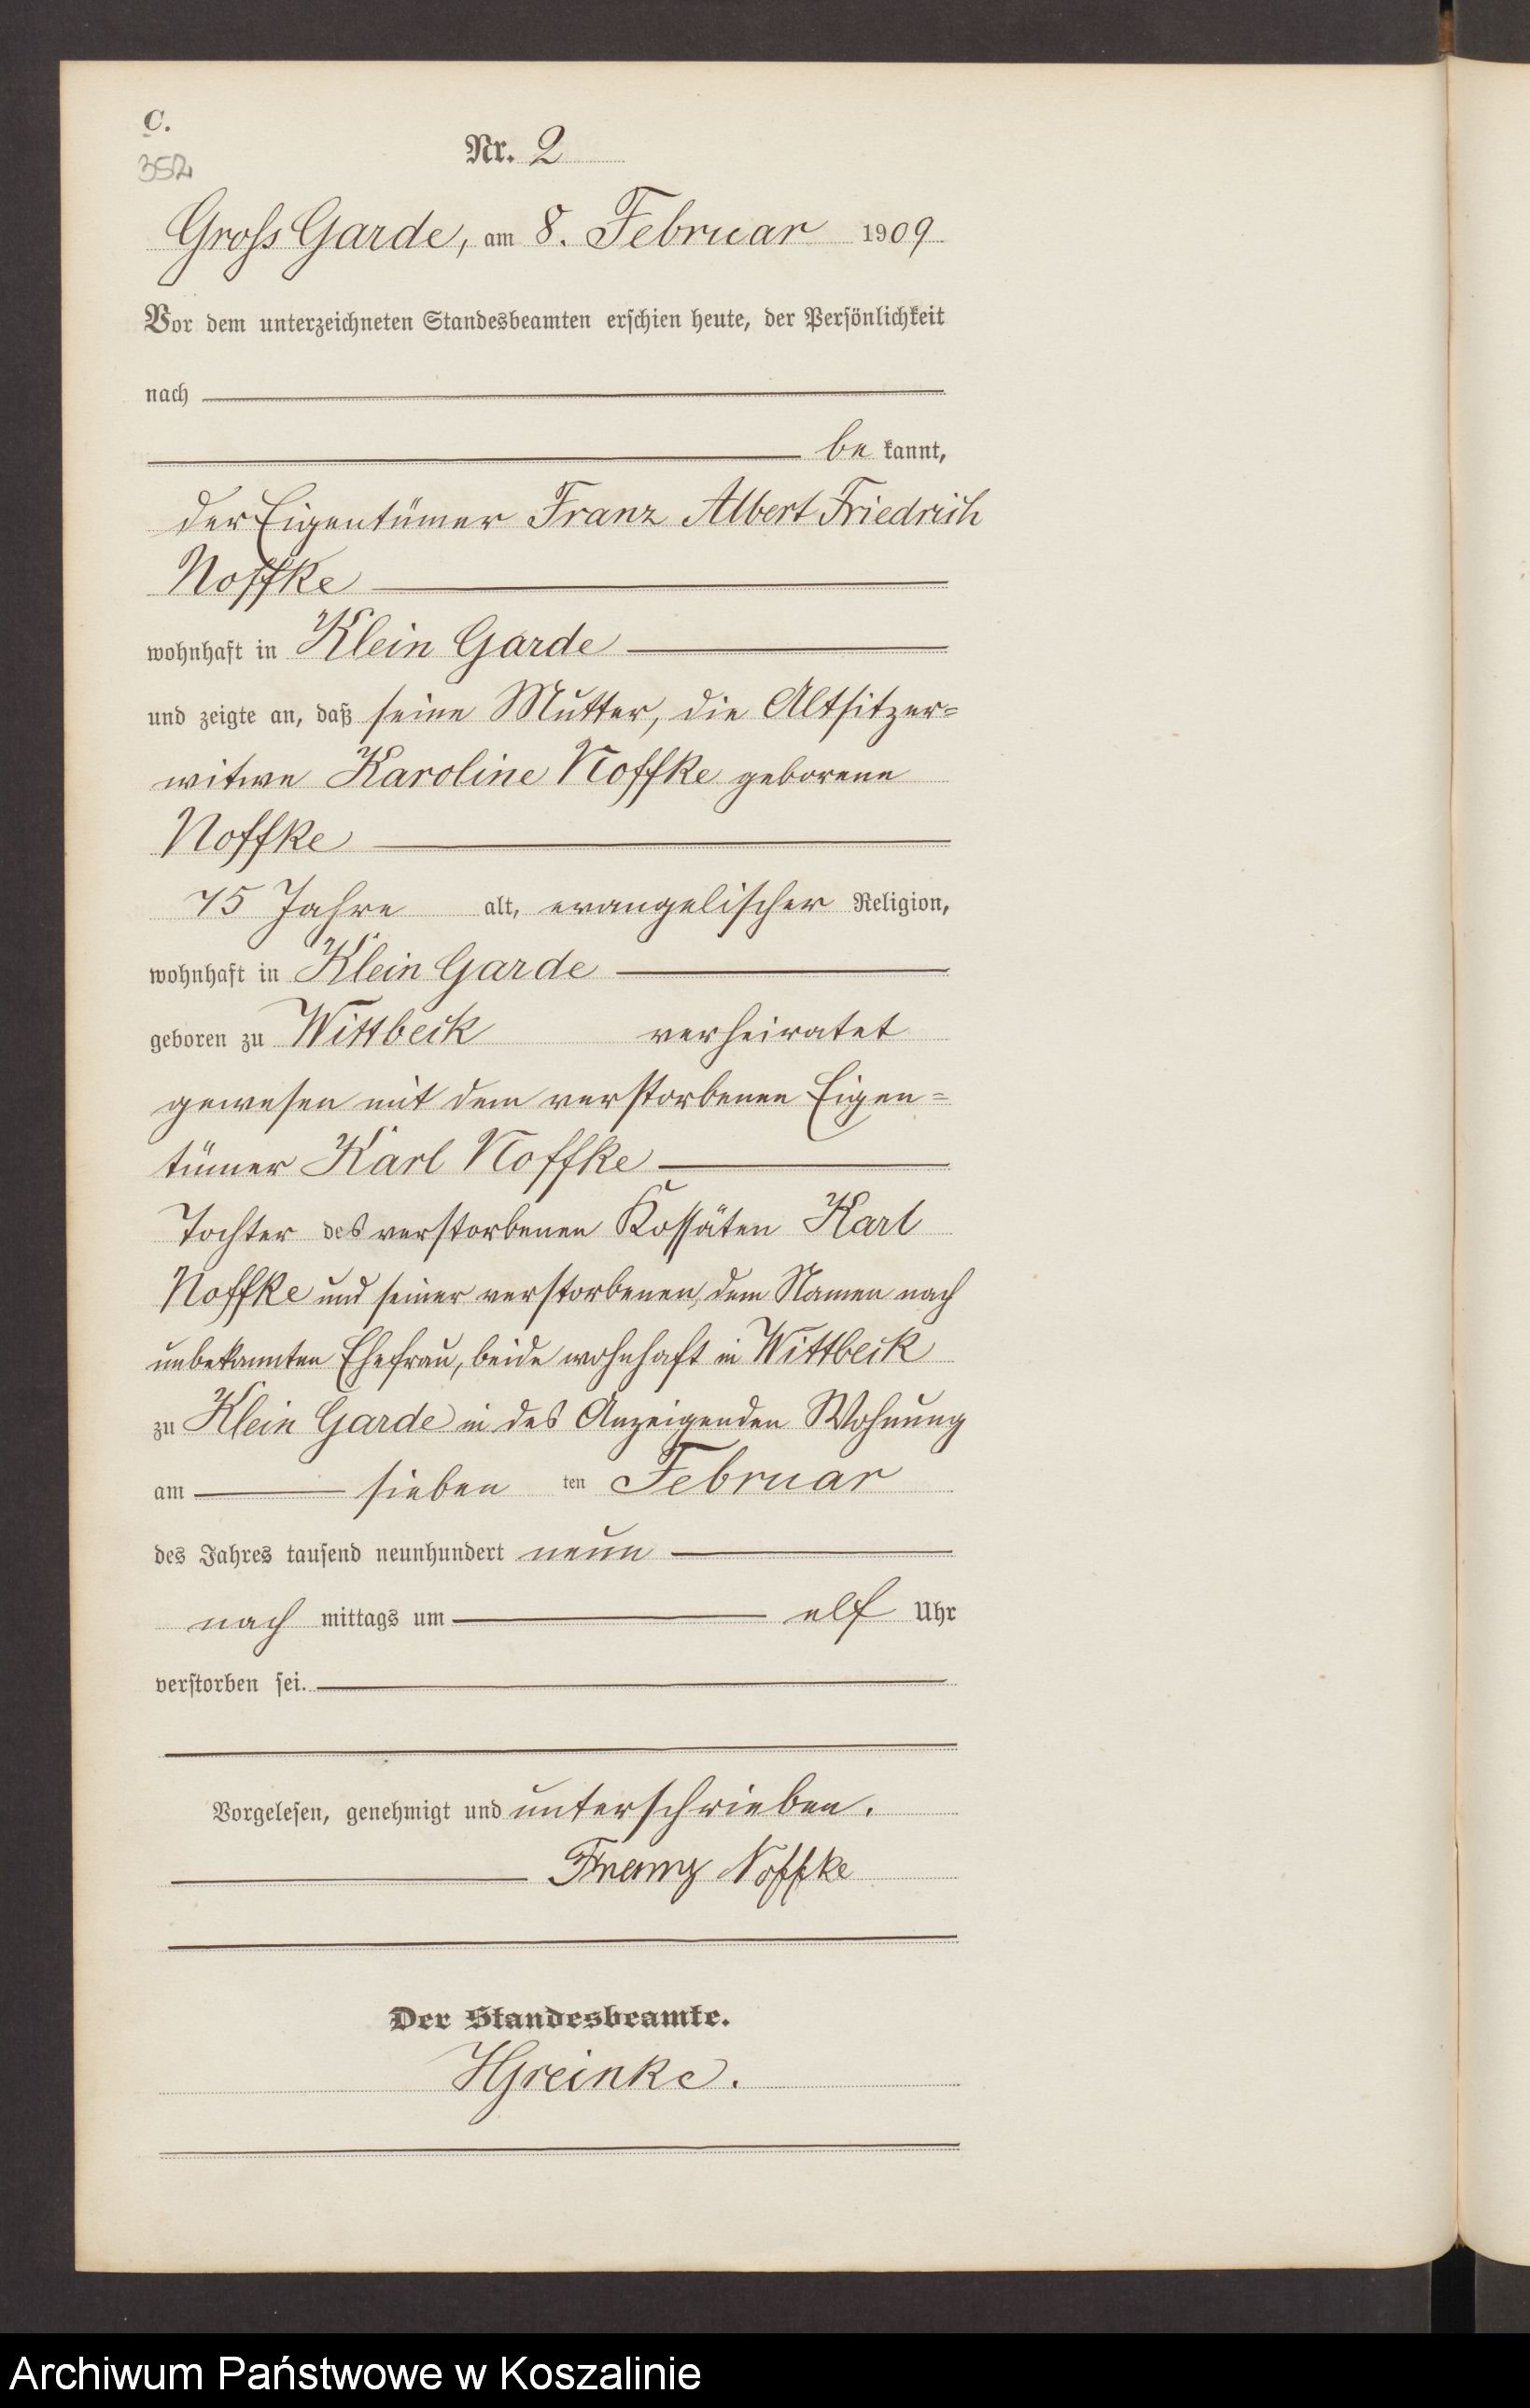 C.
352
Nr. 2
Gross Garde, am 8. Februar 1909
Vor dem unterzeichneten Standesbeamten erschien heute, der Persönlichkeit
nach
be kannt,
der Eigentümer Franz Albert Friedrich
Noffke
wohnhaft in Klein Garde
und zeigte an, daß seine Mutter, die Altsitzer-
witwe Karoline Noffke geborene
Noffke
75 Jahre alt, evangelischer Religion,
wohnhaft in Klein Garde
geboren zu Wittbeck verheiratet
gewesen mit dem verstorbenen Eigen-
tümer Karl Noffke
Tochter des verstorbenen Kossäten Karl
Noffke und seiner verstorbenen, dem Namen nach
unbekannten Ehefrau, beide wohnhaft in Wittbeck
zu Klein Garde in des Anzeigenden Wohnung
am sieben ten Februar
des Jahres tausend neunhundert neun
nach mittags um elf Uhr
verstorben sei.
Vorgelesen, genehmigt und unterschrieben.
Franz Noffke
Der Standesbeamte.
HGreinke.
Archiwum Państwowe w Koszalinie